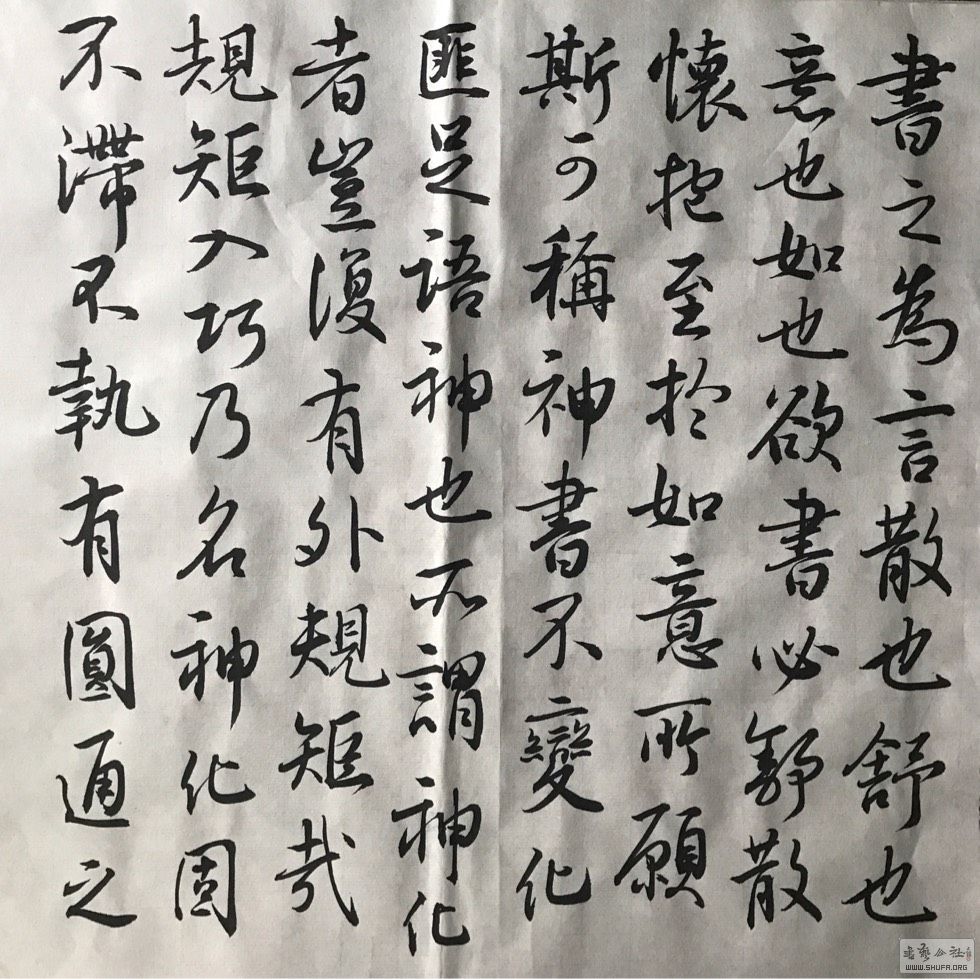 書之為言散也舒也
意也如也欲書必舒散
懷抱至於如意所願
斯可稱神書不變化
匪足語神也所謂神化
者豈復有外規矩哉
規矩入巧乃名神化固
不滯不執有圓通之
書法公社
WWW.SHUFA.ORG